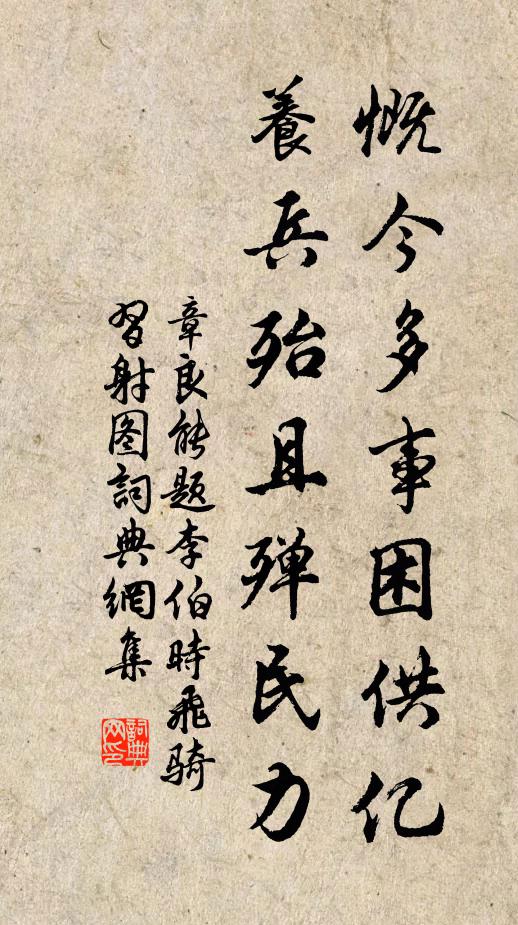 慨今多事困供亿
養兵殆且殫民力
章良能题李伯時飛骑
習射图詞典網集
詞典网印